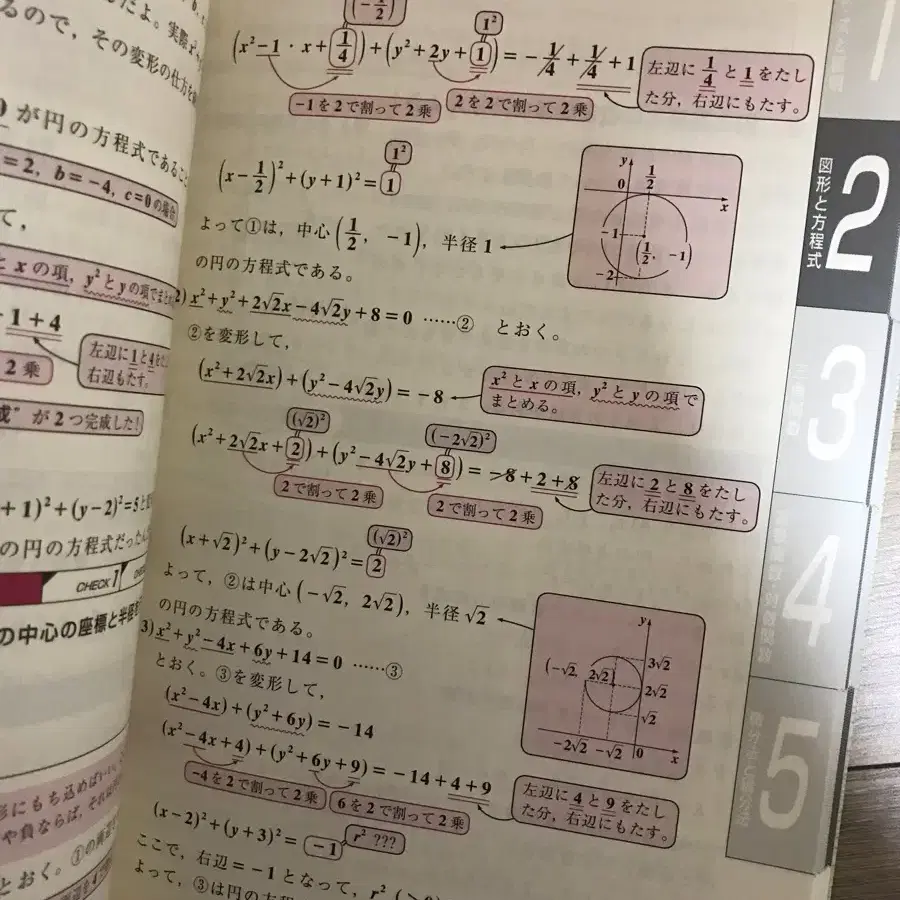 だよ。実際
るので，その変形の仕方を
が円の方程式であるこ
=2, b=-4, c=0の場合
て，
とxの項，y²とyの項でま
1+4
左辺に1と4を
右辺もたす。
2乗
成”が2つ完成した！
+1)²+(y-2)²=5
の円の方程式だった
CHECK 1
の中心の座標と半径を
形にもち込めば
や負ならば，それは
とおく。①の両辺
(x²-1・x+1/4)+(y²+2y+1)=-1/4+1/4+1
1²
-1を2で割って2乗
2を2で割って2乗
左辺に1/4と1をたし
た分，右辺にもたす。
(x-1/2)²+(y+1)²=1
1²
よって①は，中心(1/2, -1)，半径1
の円の方程式である。
y
1/2
0
x
-1
(1/2, -1)
-2
2) x²+y²+2√2x-4√2y+8=0 ……② とおく。
②を変形して，
(x²+2√2x)+(y²-4√2y)=-8
x²とxの項，y²とyの項で
まとめる。
(√2)²
(-2√2)²
(x²+2√2x+2)+(y²-4√2y+8)=-8+2+8
2で割って2乗
2で割って2乗
左辺に2と8をたし
た分，右辺にもたす。
(√2)²
(x+√2)²+(y-2√2)²=2
よって，②は中心(-√2, 2√2)，半径√2
の円の方程式である。
y
3√2
(-√2, 2√2)
2√2
√2
-2√2 -√2 0 x
3) x²+y²-4x+6y+14=0 ……③
とおく。③を変形して，
(x²-4x)+(y²+6y)=-14
(x²-4x+4)+(y²+6y+9)=-14+4+9
-4を2で割って2乗
6を2で割って2乗
左辺に4と9をたし
た分，右辺にもたす。
(x-2)²+(y+3)²=-1
r² ???
ここで，右辺=-1となって，r²
よって，③は円の方程
1
2
図形と方程式
3
4
5